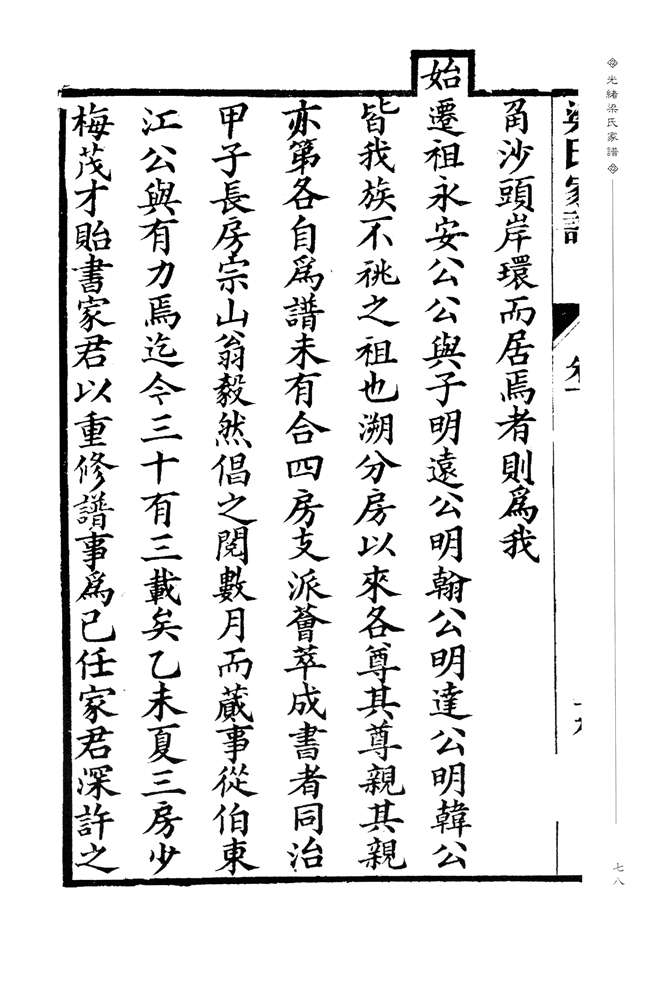 光緒梁氏家譜
梁氏家譜
卷一
角沙頭岸環而居焉者則爲我
始遷祖永安公公與子明遠公明翰公明達公明韓公
皆我族不祧之祖也溯分房以來各尊其尊親其親
亦第各自爲譜未有合四房支派薈萃成書者同治
甲子長房宗山翁毅然倡之閱數月而蕆事從伯東
江公與有力焉迄今三十有三載矣乙未夏三房少
梅茂才貽書家君以重修譜事爲己任家君深許之
七八